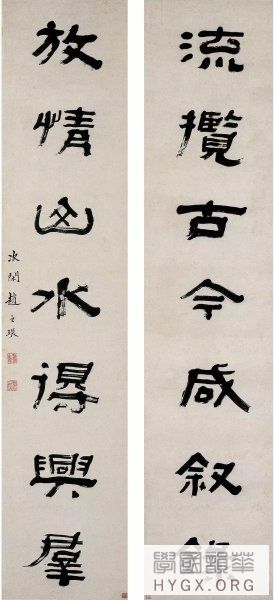 流攬古今咸敘
放情山水得興羣
次閑趙之琛
學國韻華
HYGX.ORG